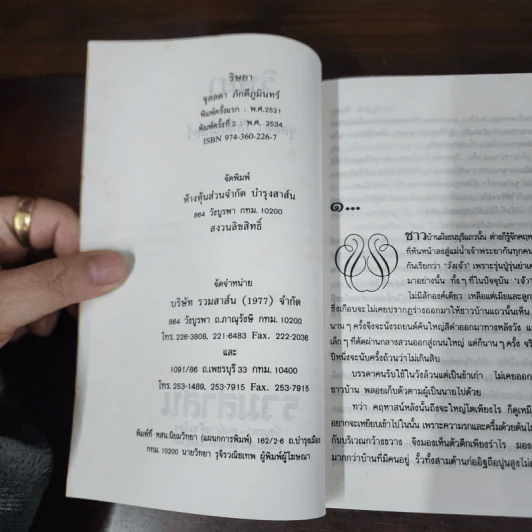 ริษยา
จุลลดา ภักดีภูมินทร์
พิมพ์ครั้งแรก : พ.ศ.2521
พิมพ์ครั้งที่ 2 : พ.ศ. 2534
ISBN 974-360-226-7
จัดพิมพ์
ห้างหุ้นส่วนจำกัด บำรุงสาส์น
864 วังบูรพา กทม. 10200
สงวนลิขสิทธิ์
จัดจำหน่าย
บริษัท รวมสาส์น (1977) จำกัด
864 วังบูรพา ถ.ภาณุรังษี กทม. 10200
โทร. 226-3808, 221-6483 Fax. 222-2036
และ
1091/86 ถ.เพชรบุรี 33 กทม. 10400
โทร. 253-1489, 253-7915 Fax. 253-7915
พิมพ์ที่ หสน.นิยมวิทยา (แผนกการพิมพ์) 162/2-6 ถ.บำรุงเมือง
กทม. 10200 นายวิทยา รุจิรวณิชเทพ ผู้พิมพ์ผู้โฆษณา
๑...
ชาวบ้านฝั่งธนบุรีแถวนั้น ต่างก็รู้จักคฤห
ที่หันหน้าลงสู่แม่น้ำเจ้าพระยากันทุกคน
กันเรียกว่า "วังเจ้า" เพราะรุ่นปู่รุ่นย่าเค
มาอย่างนั้น ทั้งๆ ที่ในปัจจุบัน "เจ้า"
ไม่มีสักองค์เดียว เหลือแต่เมียและลูก
ซึ่งเกือบจะไม่เคยปรากฏร่างออกมาให้ชาวบ้านแถวนั้นเห็น
นานๆ ครั้งจึงจะนั่งรถยนต์คันใหญ่สีดำออกมาทางหลังวัง
เล็กๆ ที่ตัดผ่านกลางสวนออกสู่ถนนใหญ่ แต่ก็นานๆ ครั้ง จริ
ปีหนึ่งจะนับครั้งถ้วนว่าไม่เกินสิบ
บรรดาคนรับใช้ในวังล้วนแต่เป็นข้าเก่า ไม่เคยออก
ชาวบ้าน พลอยเก็บตัวตามผู้เป็นนายไปด้วย
ทว่า คฤหาสน์หลังนั้นถึงจะใหญ่โตเพียงไร ก็ดูเหมื
อยากจะเหยียบเข้าไปในนั้น เพราะความรกและครึ้มด้วยต้นไม
กับบริเวณกว้างขวาง จึงมองเห็นตัวตึกเพียงรำไร มอง
มากกว่าบ้านที่มีคนอยู่ รั้วทั้งสามด้านก่ออิฐถือปูนสูงไม่